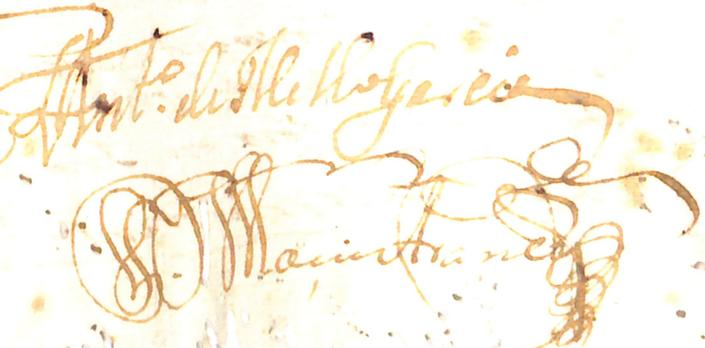 Antº de Mello Garcia
M. Maciel Franco